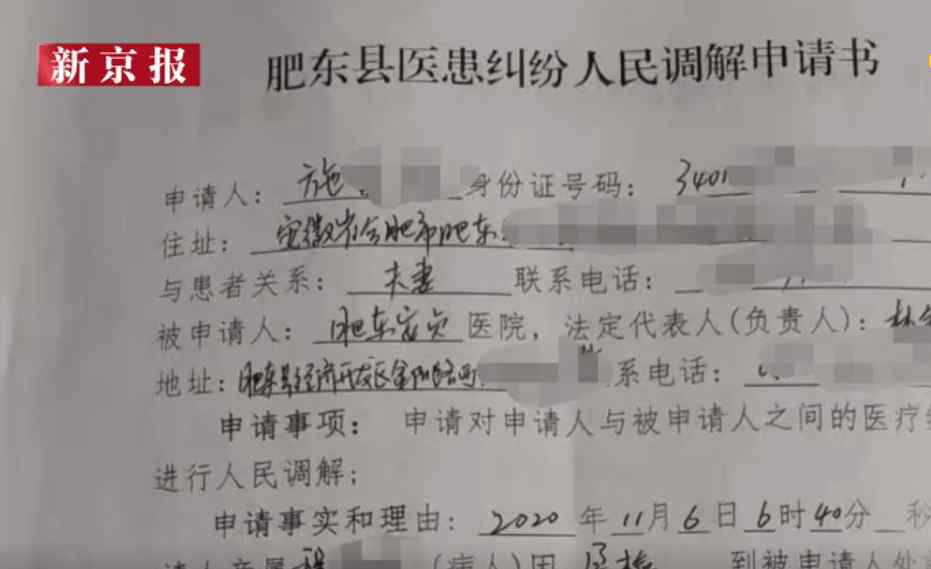 新京报
肥东县医患纠纷人民调解申请书
申请人: 施 身份证号码: 3401
住址: 安徽省合肥市肥东
与患者关系: 夫妻 联系电话:
被申请人: 肥东安贞医院, 法定代表人(负责人): 林
地址: 肥东县经济开发区金阳路 系电话:
申请事项: 申请对申请人与被申请人之间的医疗
进行人民调解;
申请事实和理由: 2020年11月6日6时40分 秒
(病人)因 到被申请人处